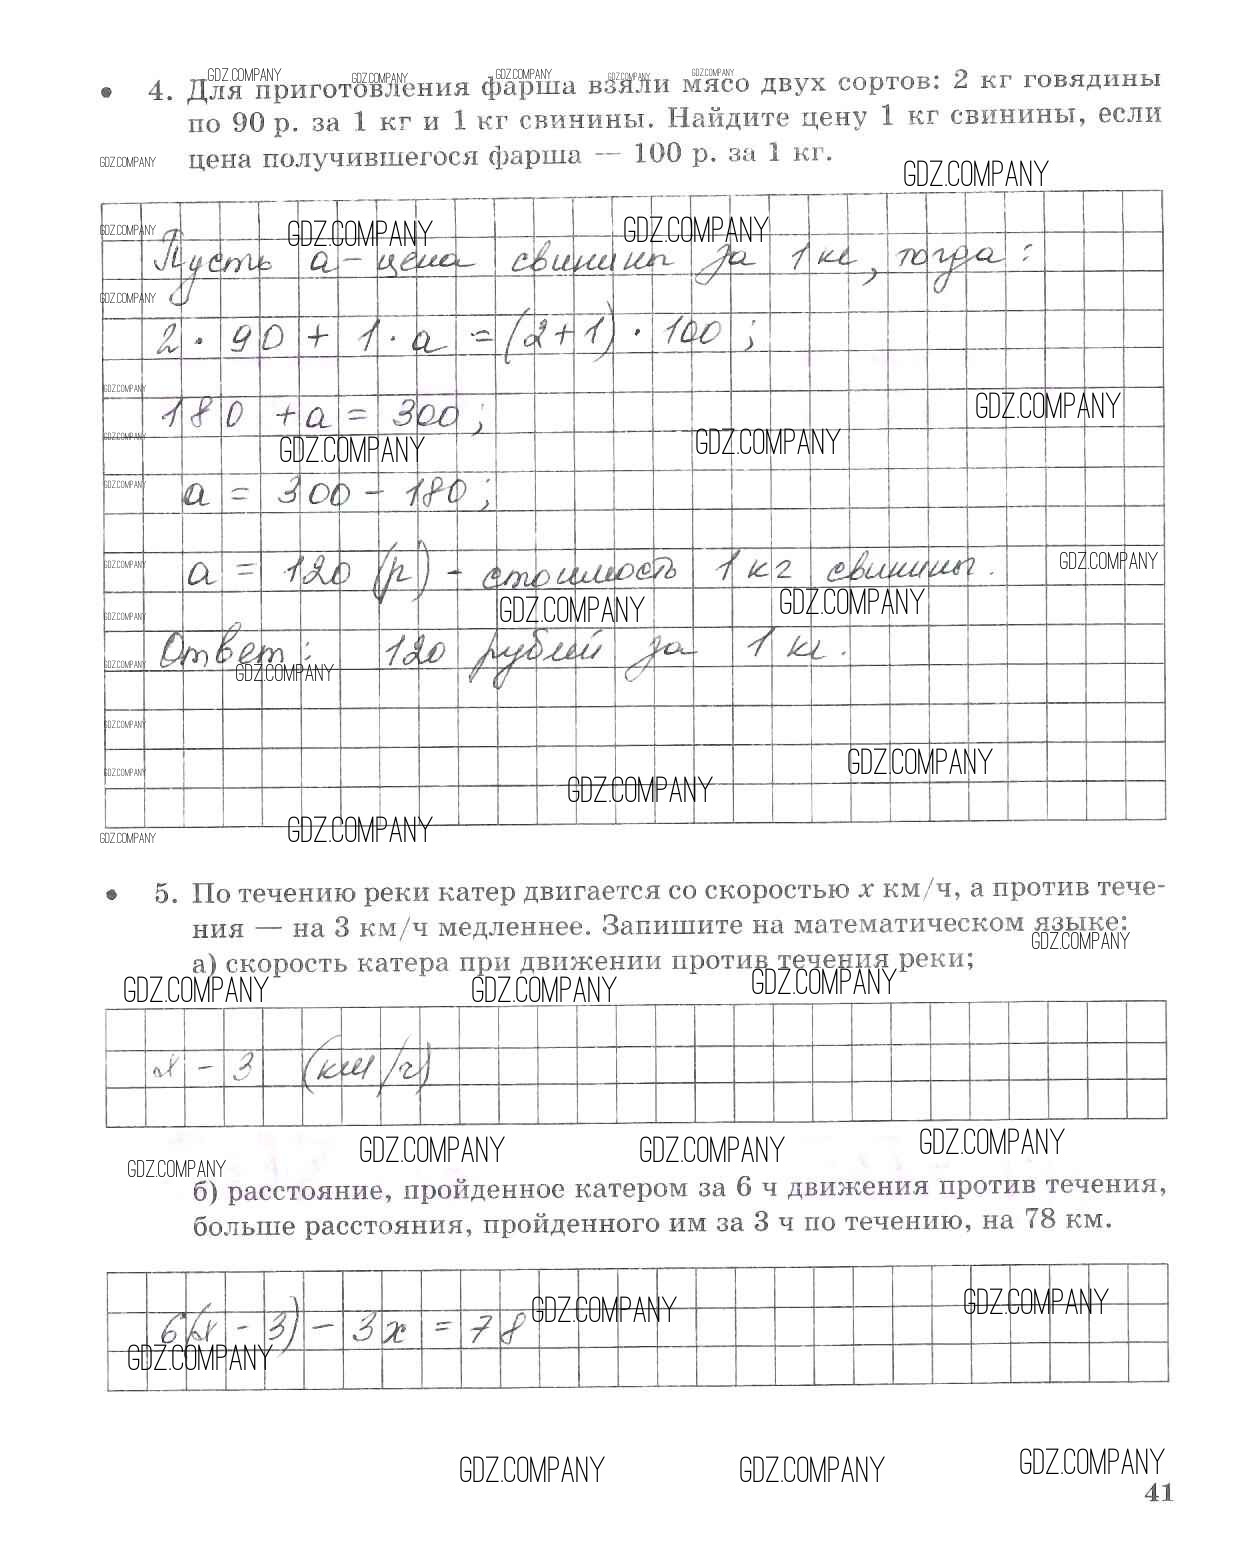 GDZ.COMPANY GDZ.COMPANY GDZ.COMPANY GDZ.COMPANY GDZ.COMPANY
• 4. Для приготовления фарша взяли мясо двух сортов: 2 кг говядины
по 90 р. за 1 кг и 1 кг свинины. Найдите цену 1 кг свинины, если
GDZ.COMPANY цена получившегося фарша — 100 р. за 1 кг.
GDZ.COMPANY
GDZ.COMPANY GDZ.COMPANY GDZ.COMPANY
Пусть a – цена свинины за 1 кг, тогда:
GDZ.COMPANY
2 · 90 + 1 · a = (2+1) · 100;
GDZ.COMPANY
GDZ.COMPANY
180 + a = 300;
GDZ.COMPANY GDZ.COMPANY GDZ.COMPANY
GDZ.COMPANY
a = 300 – 180;
GDZ.COMPANY GDZ.COMPANY
a = 120 (р) – стоимость 1 кг свинины.
GDZ.COMPANY GDZ.COMPANY GDZ.COMPANY
Ответ: 120 рублей за 1 кг.
GDZ.COMPANY GDZ.COMPANY
GDZ.COMPANY
GDZ.COMPANY GDZ.COMPANY
GDZ.COMPANY
GDZ.COMPANY GDZ.COMPANY
• 5. По течению реки катер двигается со скоростью x км/ч, а против тече-
ния — на 3 км/ч медленнее. Запишите на математическом языке:
GDZ.COMPANY
а) скорость катера при движении против течения реки;
GDZ.COMPANY GDZ.COMPANY GDZ.COMPANY
x – 3 (км/ч)
GDZ.COMPANY GDZ.COMPANY GDZ.COMPANY
GDZ.COMPANY
б) расстояние, пройденное катером за 6 ч движения против течения,
больше расстояния, пройденного им за 3 ч по течению, на 78 км.
GDZ.COMPANY GDZ.COMPANY
6(x – 3) – 3x = 78
GDZ.COMPANY
GDZ.COMPANY GDZ.COMPANY GDZ.COMPANY
41